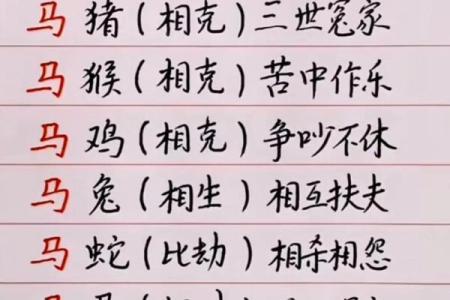 马 猪(相克)三世冤家
马 猴(相克)苦中作乐
马 鸡(相克)争吵不休
马 兔(相生)相互扶夫
马 蛇(比劫)相杀相怨